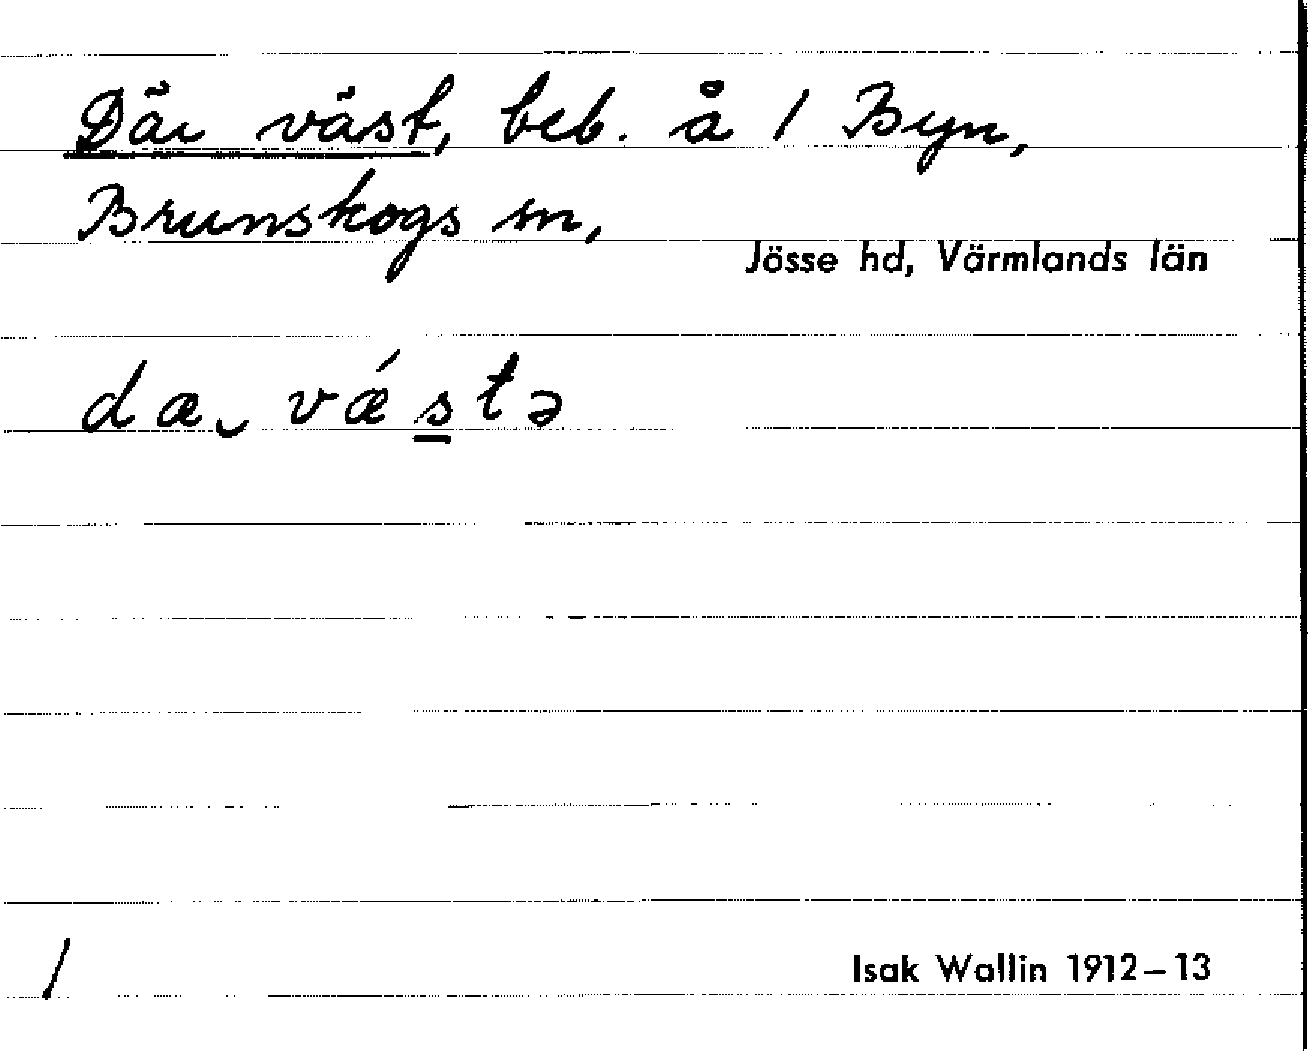 Där väst, beb. å 1 Byn,
Brunskogs sn,
Jösse hd, Värmlands län
dæ‿ vǽs̲tə
/
Isak Wallin 1912–13